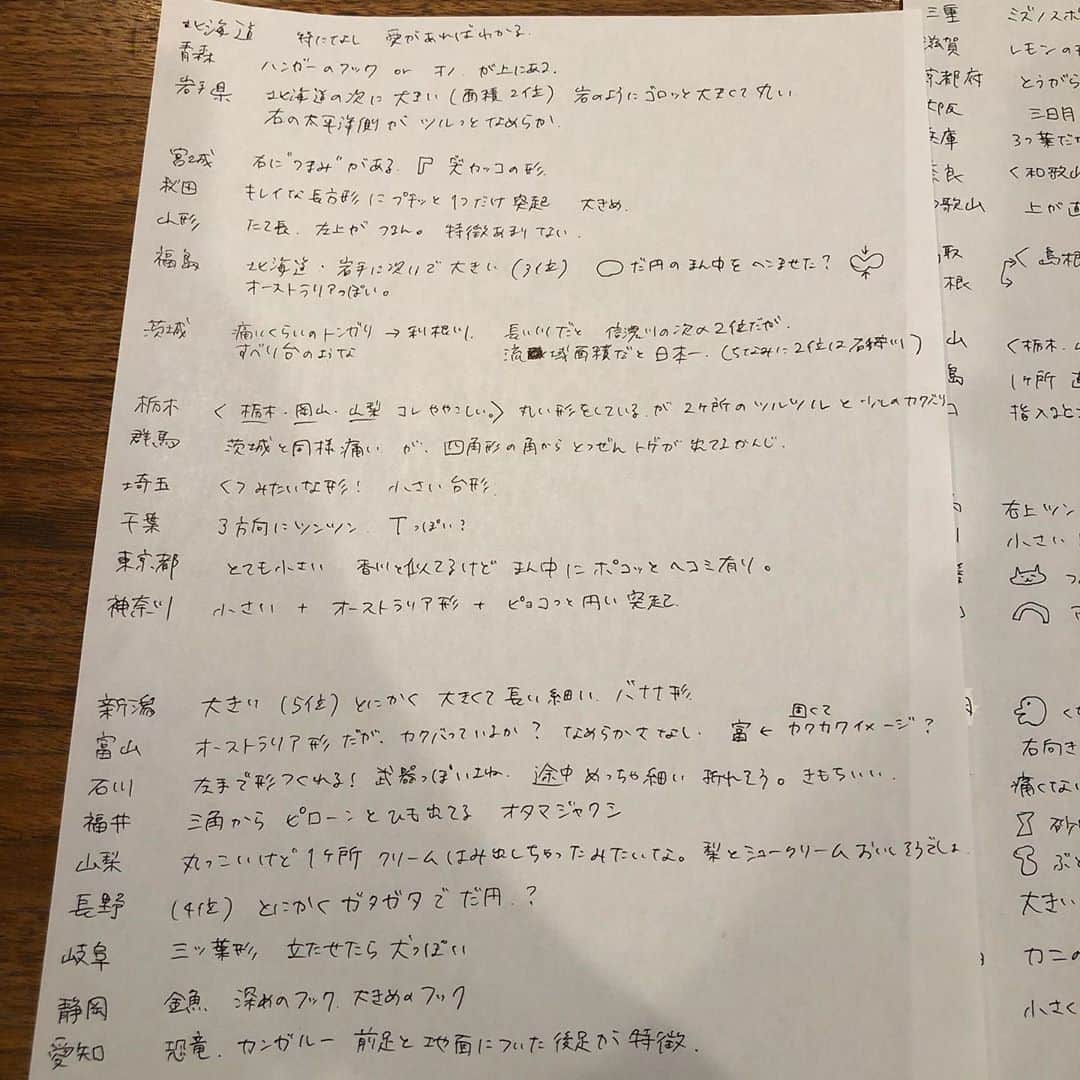 北海道 特になし 愛があればわかる.
青森 ハンガーのフック or オノ が上にある.
岩手県 北海道の次に大きい(面積2位) 岩のようにゴロッと大きくて丸い
右の太平洋側がツルっとなめらか.
宮城 右に"つまみ"がある.『 突カッコの形.
秋田 キレイな長方形にプチッと1つだけ突起 大きめ.
山形 たて長. 左上がつまん。 特徴あまりない.
福島 北海道・岩手に次いで大きい(3位) だ円のまん中をへこませた?
オーストラリアっぽい。
茨城 痛いくらいのトンガリ→利根川. 長い川だと 信濃川の次の2位だが.
すべり台のような 流域面積だと日本一.(ちなみに2位は石狩川)
栃木 〈栃木・岡山・山梨 コレややこしい。〉丸い形をしているが2ヶ所のツルツルと少しのカクバリ
群馬 茨城と同様痛いが、四角形の角からとつぜんトゲが出てるかんじ.
埼玉 くつみたいな形! 小さい台形.
千葉 3方向にツンツン. Tっぽい?
東京都 とても小さい 香川と似てるけど まん中にポコッとヘコミ有り。
神奈川 小さい + オーストラリア形 + ピョコっと円い突起.
新潟 大きい(5位)とにかく大きくて長い細い. バナナ形.
富山 オーストラリア形だが、カクバっているか? なめらかさなし. 富←固くてカクカクイメージ?
石川 左手で形つくれる! 武器っぽいよね. 途中めっちゃ細い 折れそう。きもちいい.
福井 三角からピローンとひも出てる オタマジャクシ
山梨 丸っこいけど1ヶ所クリームはみ出しちゃったみたいな。梨とシュークリームおいしそうでしょ.
長野 (4位) とにかくガタガタでだ円.?
岐阜 三ッ葉形, 立たせたら犬っぽい
静岡 金魚. 深めのフック. 大きめのフック
愛知 恐竜. カンガルー 前足と地面についた後足が特徴.
三重 ミズノスポ
滋賀 レモンの
京都府 とうがら
大阪 三日月
兵庫 3つ葉だ
奈良 〈和歌山
和歌山 上が
鳥取 〈島根
島根
〈栃木.
1ヶ所
指入
右上ツン
小さい
右向き
痛くない
大きい
カニの
小さく